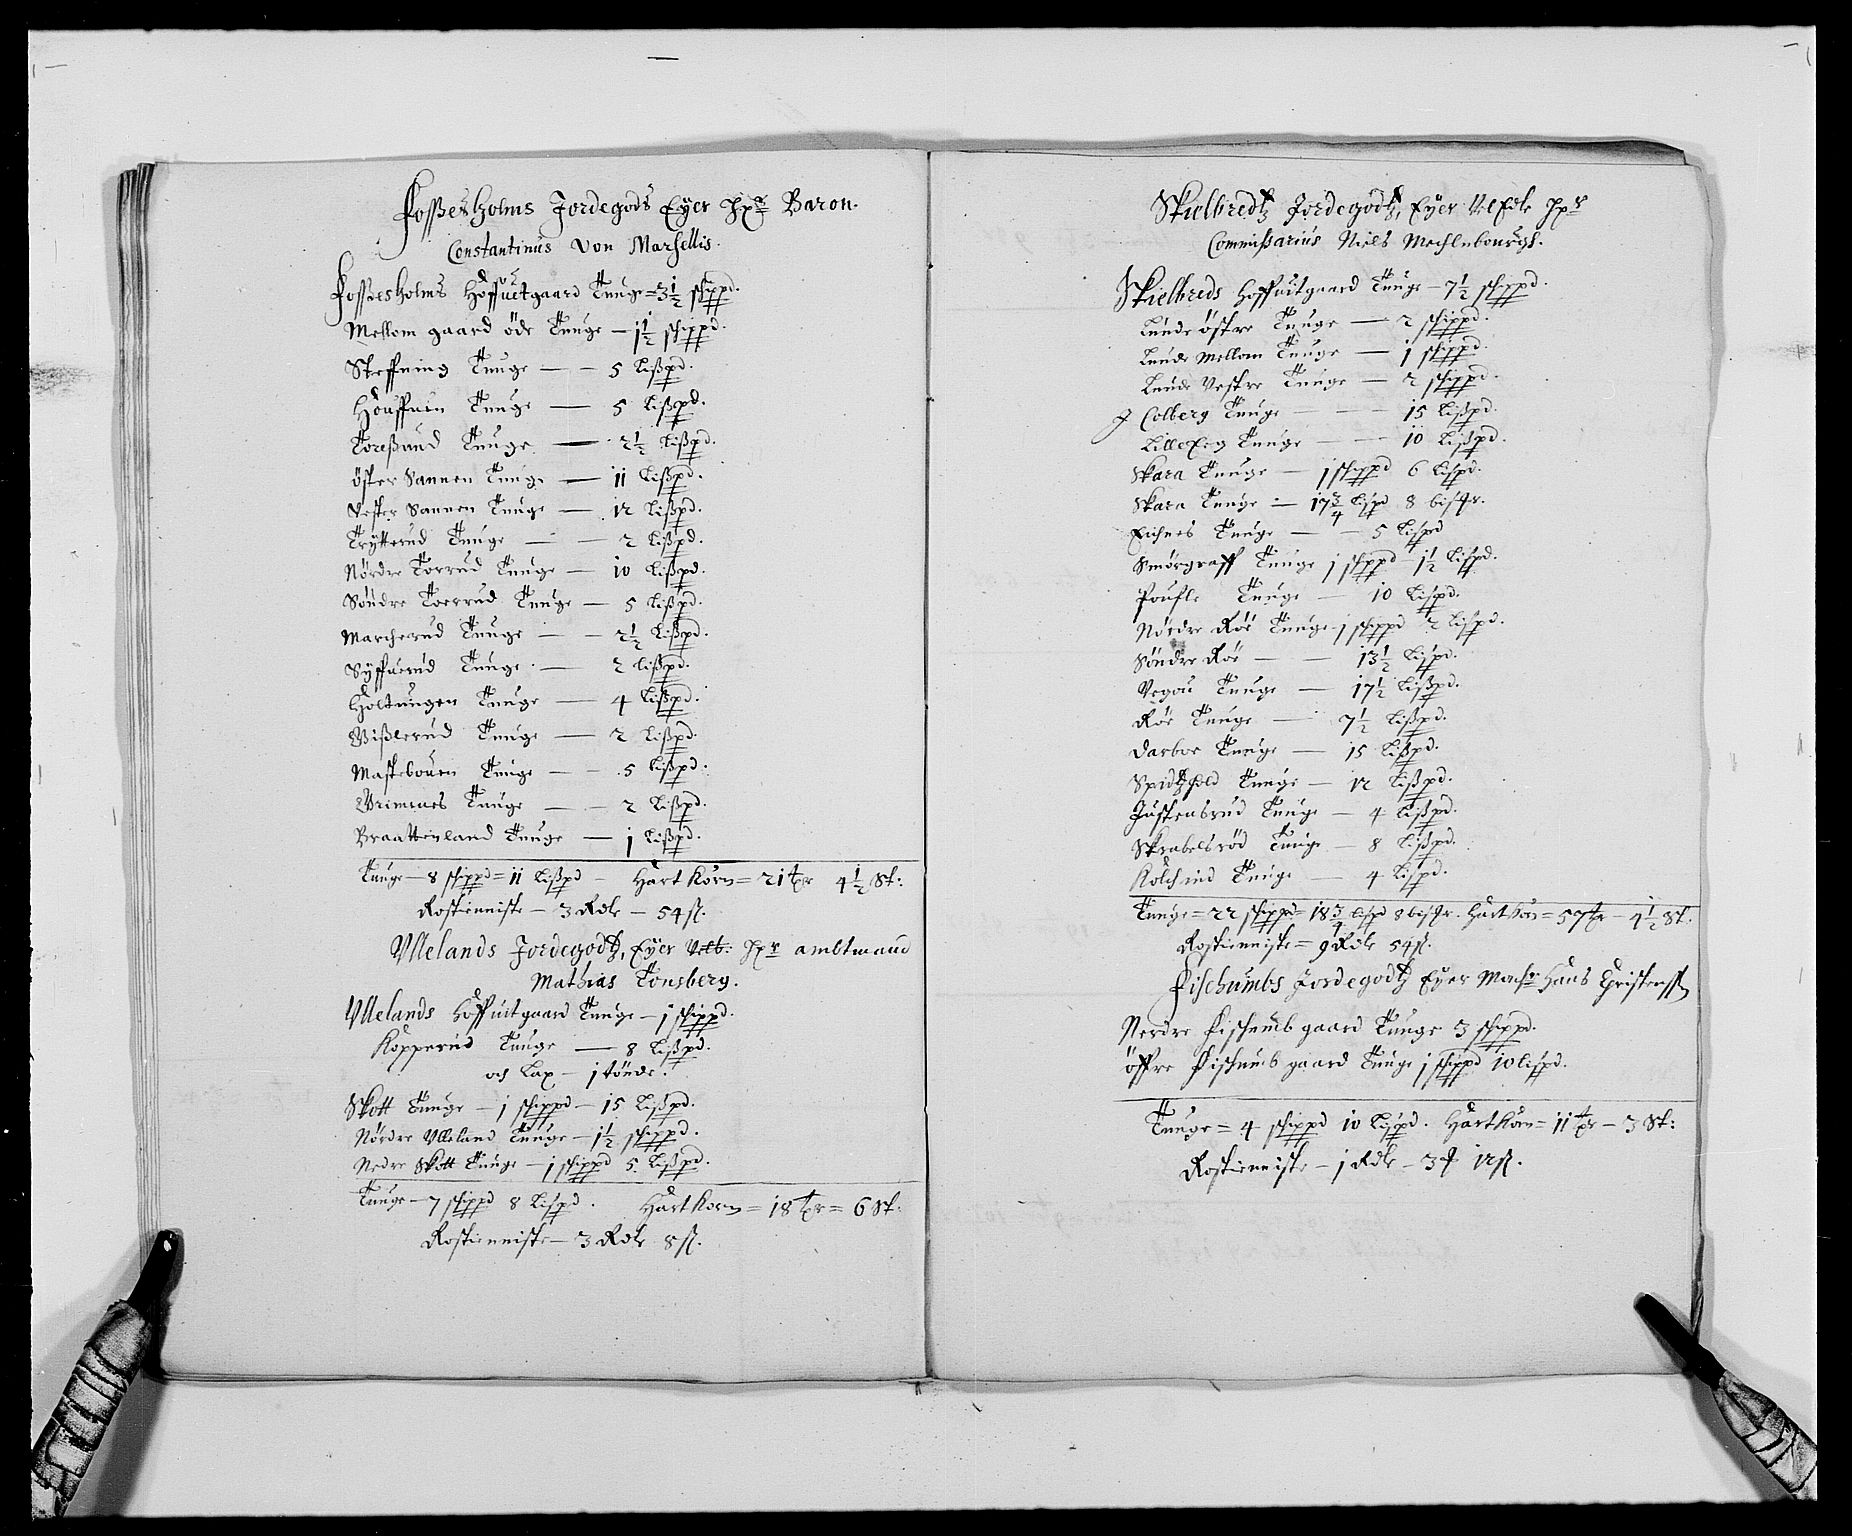 Fossesholms Jordegods Eyer Hr Baron
Constantinus Von Marsellis.
Fossesholms Hoffuitgaard Tunge = 3½ schippd.
Mellom gaard öde Tunge — 1½ schippd.
Steffning Tunge — — 5 Lißpd.
Houffuen Tunge — 5 Lißpd.
Toreßrud Tunge — 2½ Lißpd.
öster Sannen Tunge — 11 Lißpd.
Vester Sannen Tunge — 12 Lißpd.
Trÿtterud Tunge — — 2 Lißpd.
Nördre Torrud Tunge — 10 Lißpd.
Söndre Toerrud Tunge — 5 Lißpd.
Marcherud Tunge — — 2½ Lißpd.
Sÿffuerud Tunge — 2 lißpd.
Holtungen Tunge — 4 Lißpd.
Wißlerud Tunge — 2 Lißpd.
Mastebouen Tunge — — 5 Lißpd.
Wrimenes Tunge — — 2 Lißpd.
Braattenland Tunge — 1 Lißpd.
Tunge — 8 schippd = 11 Lißpd — Hart Korn = 21 tr 4½ St:
Rostienniste — 3 Rdlr — 54 ß.
Ullelands Jordegodtz, Eyer Velb: Hr ambtmand
Mathias Tonsberg.
Ullelands Hoffuitgaard Tunge — 1 schippd.
Kopperud Tunge — 8 Lißpd.
och Lax — 1 tönde.
Skott Tunge — 1 schippd — 15 Lißpd.
Nördre Ulleland Tunge — 1½ schippd.
Nedre Skott Tunge — 1 schippd 5 Lißpd.
Tunge — 7 schippd 8 Lispd. Hart Korn = 18 tr = 6 St:
Rostienniste — 3 Rdlr 8 ß.
Skielbredtz Jordegodtz, Eyer Velede Hr
Commissarius Niels Mechlenbourgh.
Skielbreds Hoffuitgaard Tunge — 7½ schippd.
Lunde östre Tunge — 2 schippd.
Lunde Mellom Tunge — 1 schippd.
Lunde Vestre Tunge — 2 schippd.
Colberg Tunge — — — 15 Lißpd.
Lilleeg Tunge — — 10 Lißpd.
Skara Tunge — 1 schippd 6 Lispd.
Skara Tunge — 17¾ Lispd 8 bismr.
Eichnes Tunge — — 5 Lispd
Smörgraff Tunge 1 schippd 1½ Lispd.
Poufle Tunge — 10 Lispd.
Nördre Röe Tunge 1 schippd 2 Lispd.
Söndre Röe — — 13½ Lispd.
Vegou Tunge — 17½ Lißpd.
Röe Tunge — 7½ Lißpd.
Darboe Tunge — 15 Lißpd.
Spidtzhold Tunge — 12 Lißpd.
Justensrud Tunge — 4 Lißpd.
Skrabelsröd Tunge — 8 Lißpd.
Kolchind Tunge — 4 Lispd.
Tunge = 22 schippd = 18¾ Lispd 8 bismr. Hart Korn = 57 tr — 4½ St.
Rostienniste = 9 Rdlr 54 ß.
Fischumbs Jordegodtz Eyer Monsr Hans Christenss
Nerdre Fischumb gaard Tunge 3 schippd.
öffre Fischumb gaard Tunge 1 schippd 10 lispd.
Tunge = 4 schippd 10 Lispd. Hart Korn = 11 tr — 3 St:
Rostienniste — 1 Rdlr — 3 12 ß.